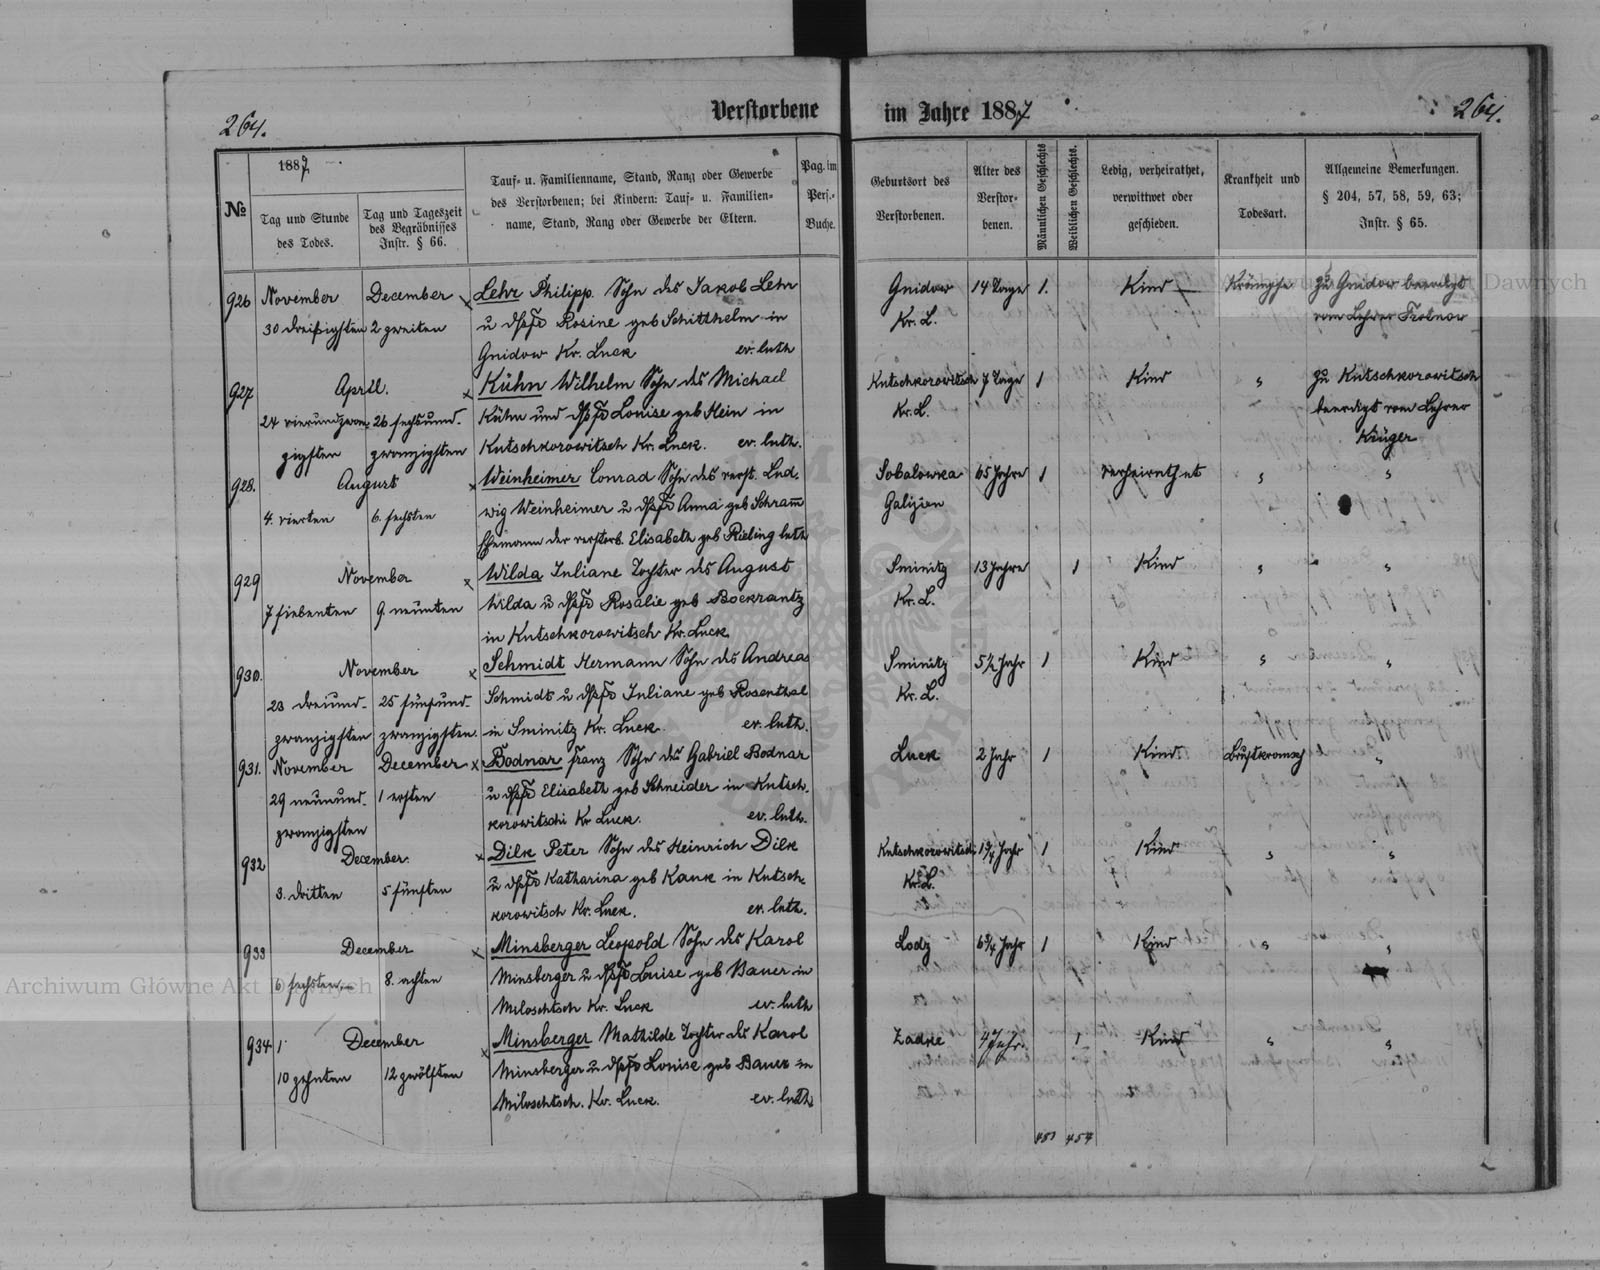 264.
Verstorbene
im Jahre 1887
264.
№
1887
Tag und Stunde
des Todes.
Tag und Tageszeit
des Begräbnisses
Instr. § 66.
Tauf- u. Familienname, Stand, Rang oder Gewerbe
des Verstorbenen; bei Kindern: Tauf- u. Familien-
name, Stand, Rang oder Gewerbe der Eltern.
Pag. im
Pers.-
Buche.
Geburtsort des
Verstorbenen.
Alter des
Verstor-
benen.
Männlichen Geschlechts
Weiblichen Geschlechts.
Ledig, verheirathet,
verwittwet oder
geschieden.
Krankheit und
Todesart.
Allgemeine Bemerkungen.
§ 204, 57, 58, 59, 63;
Instr. § 65.
926 November December Lehr Philipp. Sohn des Jakob Lehr Gnidow 14 Tage 1. Kind Krämpfe Zu Gnidow beerdigt
30 dreißigsten 2 zweiten u Rosine geb Schitthelm in Kr. L. vom Lehrer
Gnidow Kr. Luck ev. luth
927 April. Kühn Wilhelm Sohn des Michael Kutschkorowitsch 7 Tage 1 Kind " Zu Kutschkorowitsch
24 26 sechsund- Kühn und Louise geb Hein in Kr. L. beerdigt vom Lehrer
zigsten zwanzigsten Kutschkorowitsch Kr. Luck. ev. luth. Krüger
928. August Weinheimer Conrad Sohn des verst. Lud. Sobolowka 65 Jahre 1 verheirathet " "
4. vierten 6. sechsten wig Weinheimer u Anna geb Schram̄ Galizien
Ehemann der verstorb. Elisabeth geb Riesling luth
929 November Wilda Juliane Tochter des August Sminitz 13 Jahre 1 Kind " "
7 siebenten 9. neunten Wilda u Rosalie geb Bockrantz Kr. L.
in Kutschkorowitsch Kr. Luck
930. November Schmidt Hermann Sohn des Andreas Sminitz 5½ Jahr 1 Kind " "
23 dreiund- 25 fünfund- Schmidt u Juliane geb Rosenthal Kr. L.
zwanzigsten zwanzigsten. in Sminitz Kr. Luck. ev. luth.
931. November December Bodnar Franz Sohn des Gabriel Bodnar Luck 2 Jahr 1 Kind "
29 neunund- 1 ersten u Elisabeth geb Schneider in Kutsch.
zwanzigsten korowitschi Kr Luck. ev. luth.
932 December. Dilk Peter Sohn des Heinrich Dilk Kutschkorowitsch 1¾ Jahr 1 Kind " "
3. dritten 5 fünften u Katharina geb Kauk in Kutsch- Kr. L.
korowitsch Kr. Luck. ev. luth.
933 December Minsberger Leopold Sohn des Karol Lodz 6¾ Jahr 1 Kind " "
6 sechsten 8. achten Minsberger u Louise geb Bauer in
Miloschtsch Kr. Luck ev. luth
934 December Minsberger Mathilde Tochter des Karol Zadke 4 Jahr. 1 Kind " "
10 zehnten 12 zwölften Minsberger u Louise geb Bauer in
Miloschtsch. Kr. Luck. ev. luth
451 454
Archiwum Główne Akt Dawnych
Archiwum Główne Akt Dawnych